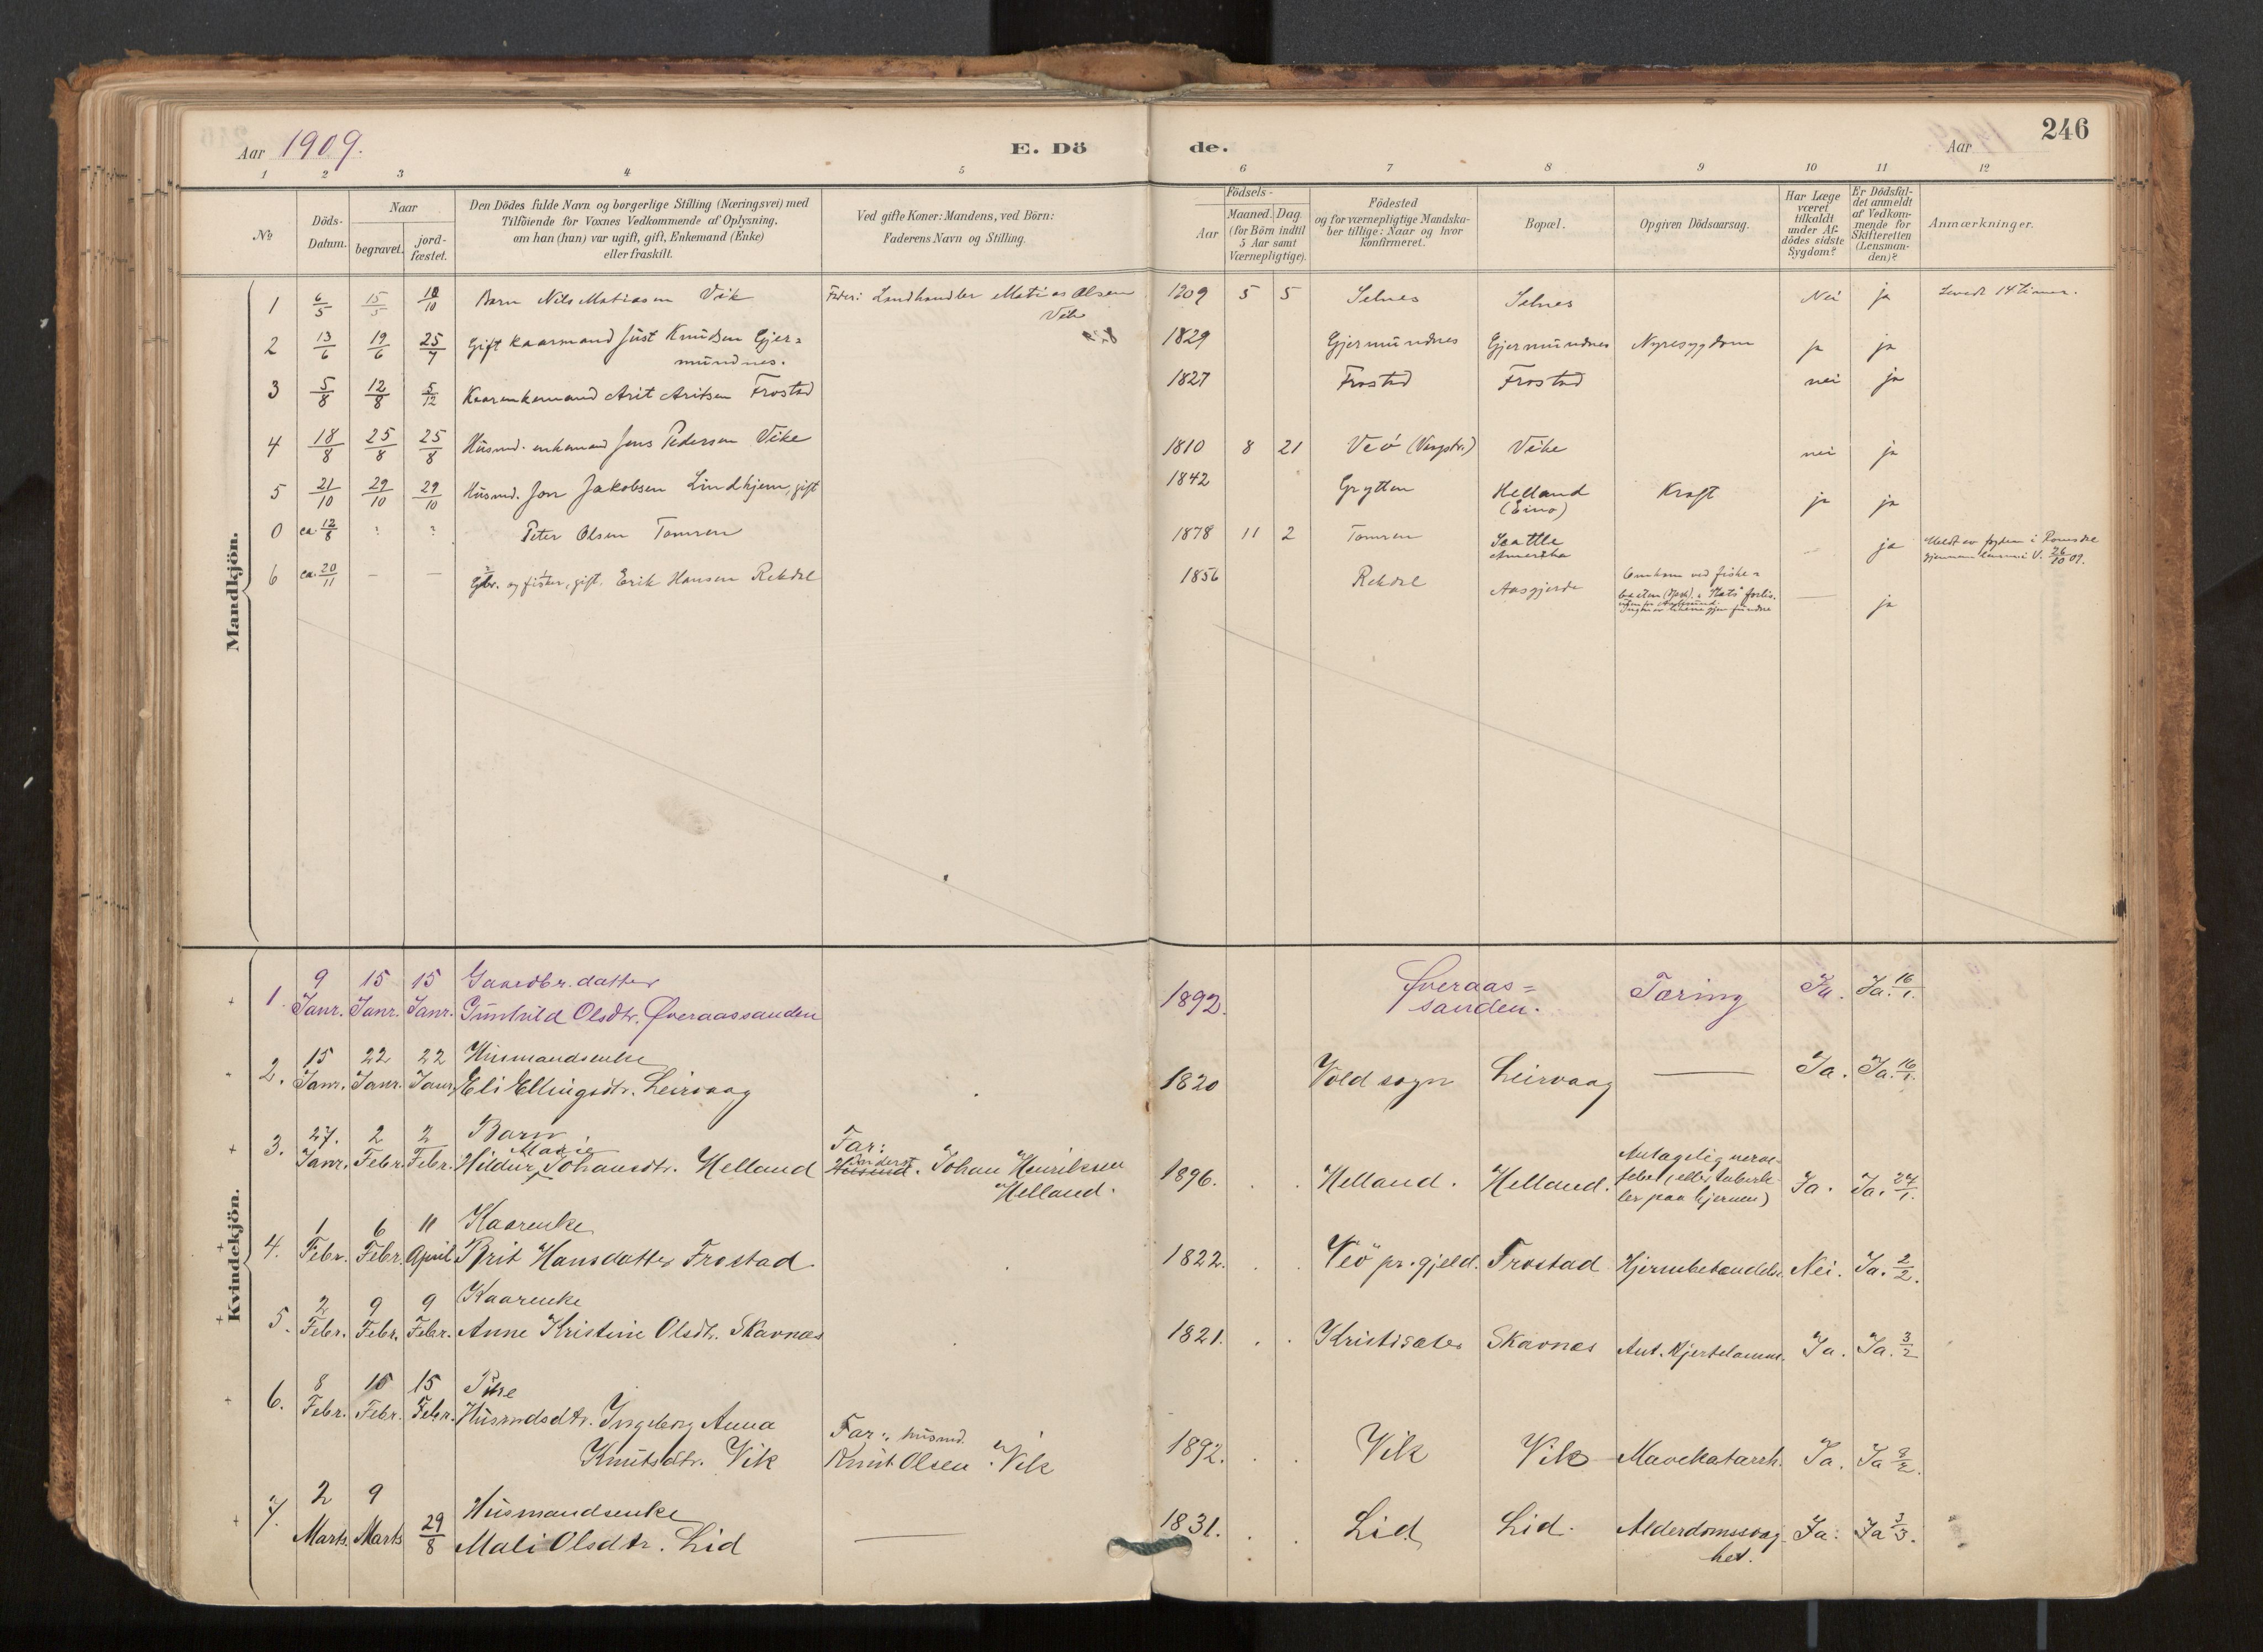 Aar 1909.
E. Döde.
Aar
246
1 2 3 4 5 6 7 8 9 10 11 12
No
Döds-
Datum.
Naar
begravet.
jord-
fæstet.
Den Dödes fulde Navn og borgerlige Stilling (Næringsvei) med
Tilföiende for Voxnes Vedkommende af Oplysning,
om han (hun) var ugift, gift, Enkemand (Enke)
eller fraskilt.
Ved gifte Koner: Mandens, ved Börn:
Faderens Navn og Stilling.
Födsels-
Aar
Maaned. Dag.
(for Börn indtil
5 Aar samt
Værnepligtige).
Födested
og for værnepligtige Mandska-
ber tillige: Naar og hvor
konfirmeret.
Bopæl.
Opgiven Dödsaarsag.
Har Læge
været
tilkaldt
under Af-
dödes sidste
Sygdom?
Er Dödsfal-
det anmeldt
af Vedkom-
mende for
Skifteretten
(Lensman-
den)?
Anmærkninger.
Mandkjön.
1 6/5 15/5 10/10 Barn Nils Matiasen Vik Fader: Landhandler Matias Olsen Vik 1909 5 5 Selnes Selnes Nei ja Levede 14 timer.
2 13/6 19/6 25/7 Gift kaarmand Just Knudsen Gjer=
mundnes. 1829 Gjermundnes Gjermundnes Nyresygdom ja ja
3 5/8 12/8 5/12 Kaarenkemand Arit Aritsen Frostad 1827 Frostad Frostad nei ja
4 18/8 25/8 25/8 Husmd. enkemand Jens Pedersen Vike 1810 8 21 Veö Vike nei ja
5 21/10 29/10 29/10 Husmd. Jon Jakobsen Lindhjem, gift 1842 Grytten Helland
(Eino) Kræft ja ja
0 ca. 12/8 : : Peter Olsen Tomren 1878 11 2 Tomren Seattle
Amerika ja Meldt av fogden i Romsdal
gjennem 26/10 09.
6 ca. 20/11 — — Gbr. og fisker, gift. Erik Hansen Rekdal 1856 Rekdal Aasgjerde Omkom ved fiske=
forlis.
— ja
Kvindekjön.
1. 9 Janr. 15 Janr. 15 Janr. Gaardbr. datter
Gunhild Olsdtr. Øveraassanden 1892. Øveraas=
sanden. Tæring Ja. Ja. 16/1.
2. 15 Janr. 22 Janr. 22 Janr. Husmandsenke
Eli Ellingsdtr. Leirvaag 1820 Vold sogn Leirvaag — Ja. Ja. 16/1.
3. 27. Janr. 2 Febr. 2 Febr. Barn
Hildur Marie Johansdtr. Helland Far:
Husmd. Inderst. Johan Henriksen
Helland. 1896. Helland. Helland. Antagelig nerve-
feber (eller tuberk-
ler paa hjernen) Ja. Ja. 27/1.
4. 1 Febr. 6 Febr. 11 April Kaarenke
Brit Hansdatter Frostad 1822. Veö pr.gjeld. Frostad Hjernebetændelse. Nei. Ja. 2/2.
5. 2 Febr. 9 Febr. 9 Febr. Kaarenke
Anne Kristine Olsdtr. Skavnes 1821. Kristisæter Skavnes Ant. Hjertelamm. Ja. Ja. 3/2
6. 8 Febr. 15 Febr. 15 Febr. Pike
Husmdsdtr. Ingeborg Anna
Knutsdtr. Vik Far: husmd.
Knut Olsen Vik 1892. Vik Vik Mavekatarrh. Ja. Ja 9/2.
7. 2 Marts. 9 Marts 29/8 Husmandsenke
Mali Olsdtr. Lid — 1831. Lid Lid. Alderdomssvag-
het. Ja. Ja 3/3.